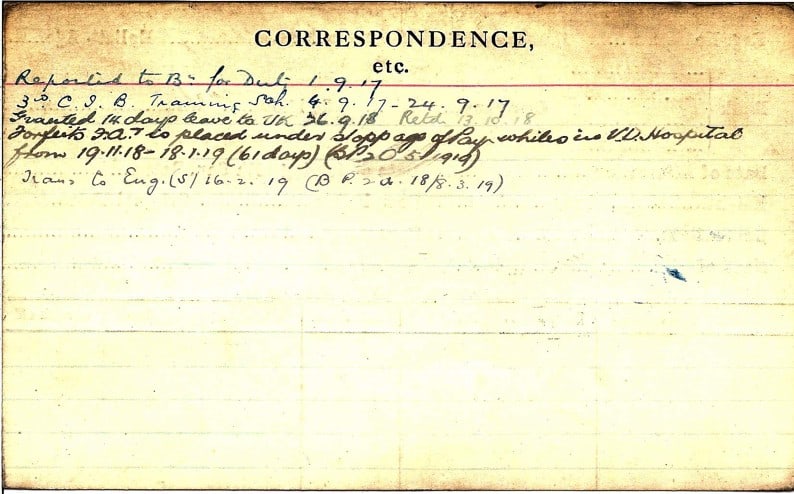 CORRESPONDENCE,
etc.
Reported to Bn for Duty 1.9.17
3rd C.I.B. Training Sch. 4.9.17-24.9.17
Granted 14 days leave to UK 26.9.18 Retd 13.10.18
Forfeits F.A. & placed under stoppage of Pay whilst in V.D. Hospital
from 19.11.18-18.1.19 (61 days) (B.P. 20 5/1919)
Trans to Eng. (S) 16.2.19 (B P. 2 d. 18/8.3.19)